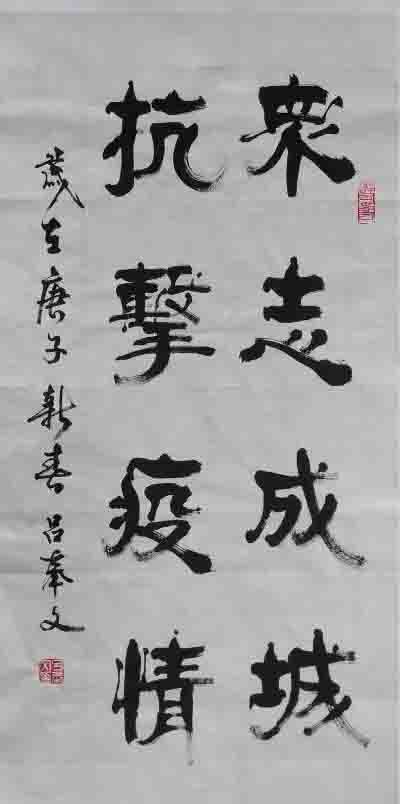 眾志成城
抗擊疫情
歲在庚子新春吕奉文